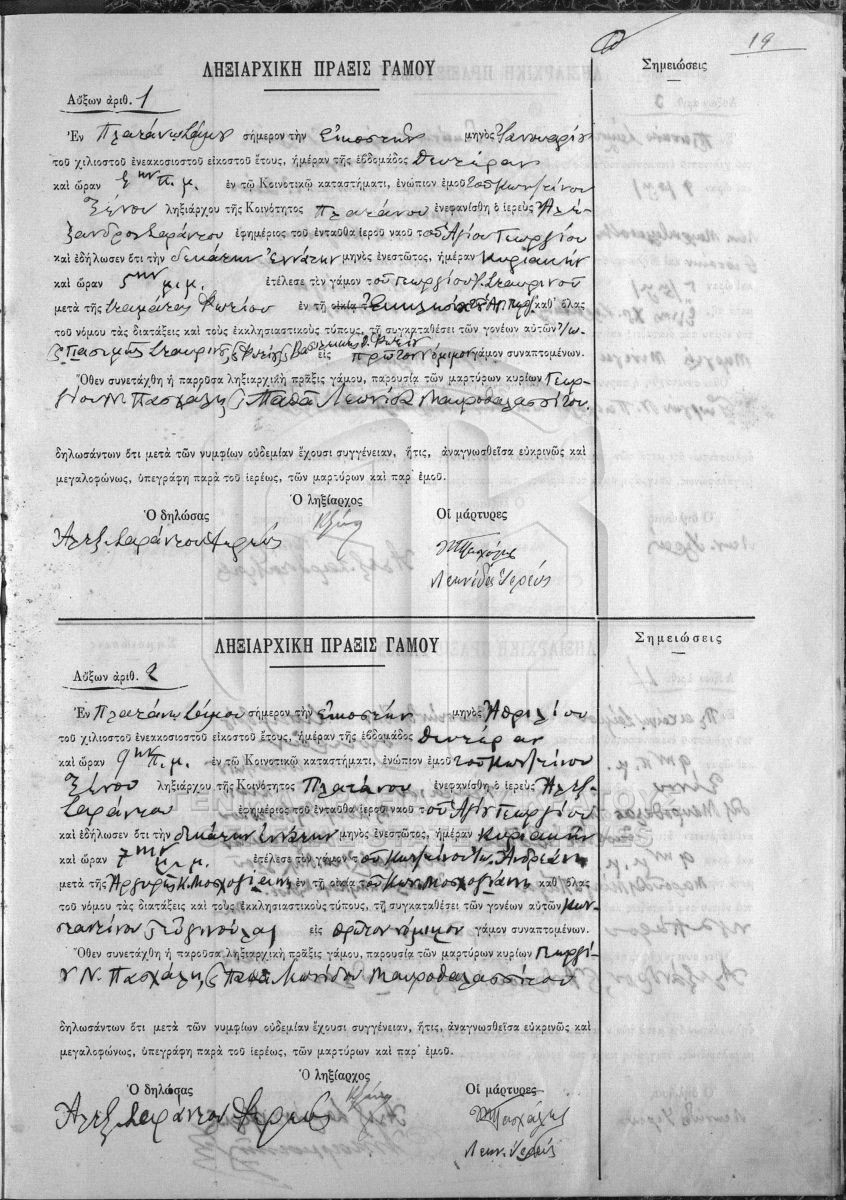 19
ΛΗΞΙΑΡΧΙΚΗ ΠΡΑΞΙΣ ΓΑΜΟΥ
Σημειώσεις
Αὔξων ἀριθ. 1
Ἐν Πλατάνῳ Σάμου σήμερον τὴν εἰκοστὴν μηνὸς Ἰανουαρίου
τοῦ χιλιοστοῦ ἐνεακοσιοστοῦ εἰκοστοῦ ἔτους, ἡμέραν τῆς ἑβδομάδος Δευτέραν
καὶ ὥραν π.μ. ἐν τῷ Κοινοτικῷ καταστήματι, ἐνώπιον ἐμοῦ τοῦ Κωνσταντίνου
Ξένου ληξιάρχου τῆς Κοινότητος Πλατάνου ἐνεφανίσθη ὁ ἱερεὺς Ἀλέ-
ξανδρος Σαράντου ἐφημέριος τοῦ ἐνταῦθα ἱεροῦ ναοῦ τοῦ Ἁγίου Γεωργίου
καὶ ἐδήλωσεν ὅτι τὴν δεκάτην ἐννάτην μηνὸς ἐνεστῶτος, ἡμέραν Κυριακὴν
καὶ ὥραν 5ην μ.μ. ἐτέλεσε τὸν γάμον τοῦ Γεωργίου Σταυρινοῦ
μετὰ τῆς Σταμάτας Φωτίου ἐν τῇ οἰκίᾳ καθ' ὅλας
τοῦ νόμου τὰς διατάξεις καὶ τοὺς ἐκκλησιαστικοὺς τύπους, τῇ συγκαταθέσει τῶν γονέων αὐτῶν
Σταυρινοῦ εἰς πρῶτον νόμιμον γάμον συναπτομένων.
Ὅθεν συνετάχθη ἡ παροῦσα ληξιαρχικὴ πρᾶξις γάμου, παρουσίᾳ τῶν μαρτύρων κυρίων Γεωρ-
γίου Ν. Πασχάλη ς Παπᾶ Λεωνίδα Μαυροθαλασσίτου.
δηλωσάντων ὅτι μετὰ τῶν νυμφίων οὐδεμίαν ἔχουσι συγγένειαν, ἥτις, ἀναγνωσθεῖσα εὐκρινῶς καὶ
μεγαλοφώνως, ὑπεγράφη παρὰ τοῦ ἱερέως, τῶν μαρτύρων καὶ παρ' ἐμοῦ.
Ὁ ληξίαρχος
Ὁ δηλώσας
Οἱ μάρτυρες
Κ Ξένος
Αλέξ. Σαράντου Ἱερεύς
Γ Ν Πασχάλης
Λεωνίδας Ἱερεύς
ΛΗΞΙΑΡΧΙΚΗ ΠΡΑΞΙΣ ΓΑΜΟΥ
Σημειώσεις
Αὔξων ἀριθ. 2
Ἐν Πλατάνῳ Σάμου σήμερον τὴν εἰκοστὴν μηνὸς Ἀπριλίου
τοῦ χιλιοστοῦ ἐνεακοσιοστοῦ εἰκοστοῦ ἔτους, ἡμέραν τῆς ἑβδομάδος Δευτέραν
καὶ ὥραν 9ην π.μ. ἐν τῷ Κοινοτικῷ καταστήματι, ἐνώπιον ἐμοῦ τοῦ Κωνσταντίνου
Ξένου ληξιάρχου τῆς Κοινότητος Πλατάνου ἐνεφανίσθη ὁ ἱερεὺς Ἀλέξ.
Σαράντου ἐφημέριος τοῦ ἐνταῦθα ἱεροῦ ναοῦ τοῦ Ἁγίου Γεωργίου
καὶ ἐδήλωσεν ὅτι τὴν δεκάτην ἐννάτην μηνὸς ἐνεστῶτος, ἡμέραν Κυριακὴν
καὶ ὥραν 7ην μ.μ. ἐτέλεσε τὸν γάμον τοῦ Κωνσταντίνου Ἀνδριάνη
μετὰ τῆς Ἀργυρῶς Κ. Μοσχογιάννη ἐν τῇ οἰκίᾳ τοῦ Κων. Μοσχογιάννη καθ' ὅλας
τοῦ νόμου τὰς διατάξεις καὶ τοὺς ἐκκλησιαστικοὺς τύπους, τῇ συγκαταθέσει τῶν γονέων αὐτῶν Κων-
σταντίνου εἰς πρῶτον νόμιμον γάμον συναπτομένων.
Ὅθεν συνετάχθη ἡ παροῦσα ληξιαρχικὴ πρᾶξις γάμου, παρουσίᾳ τῶν μαρτύρων κυρίων Γεωργί-
ου Ν. Πασχάλη ς Παπᾶ Λεωνίδου Μαυροθαλασσίτου
δηλωσάντων ὅτι μετὰ τῶν νυμφίων οὐδεμίαν ἔχουσι συγγένειαν, ἥτις, ἀναγνωσθεῖσα εὐκρινῶς καὶ
μεγαλοφώνως, ὑπεγράφη παρὰ τοῦ ἱερέως, τῶν μαρτύρων καὶ παρ' ἐμοῦ.
Ὁ ληξίαρχος
Ὁ δηλώσας
Οἱ μάρτυρες
Κ Ξένος
Αλέξ. Σαράντου Ἱερεύς
Γ Ν Πασχάλης
Λεων. Ἱερεύς